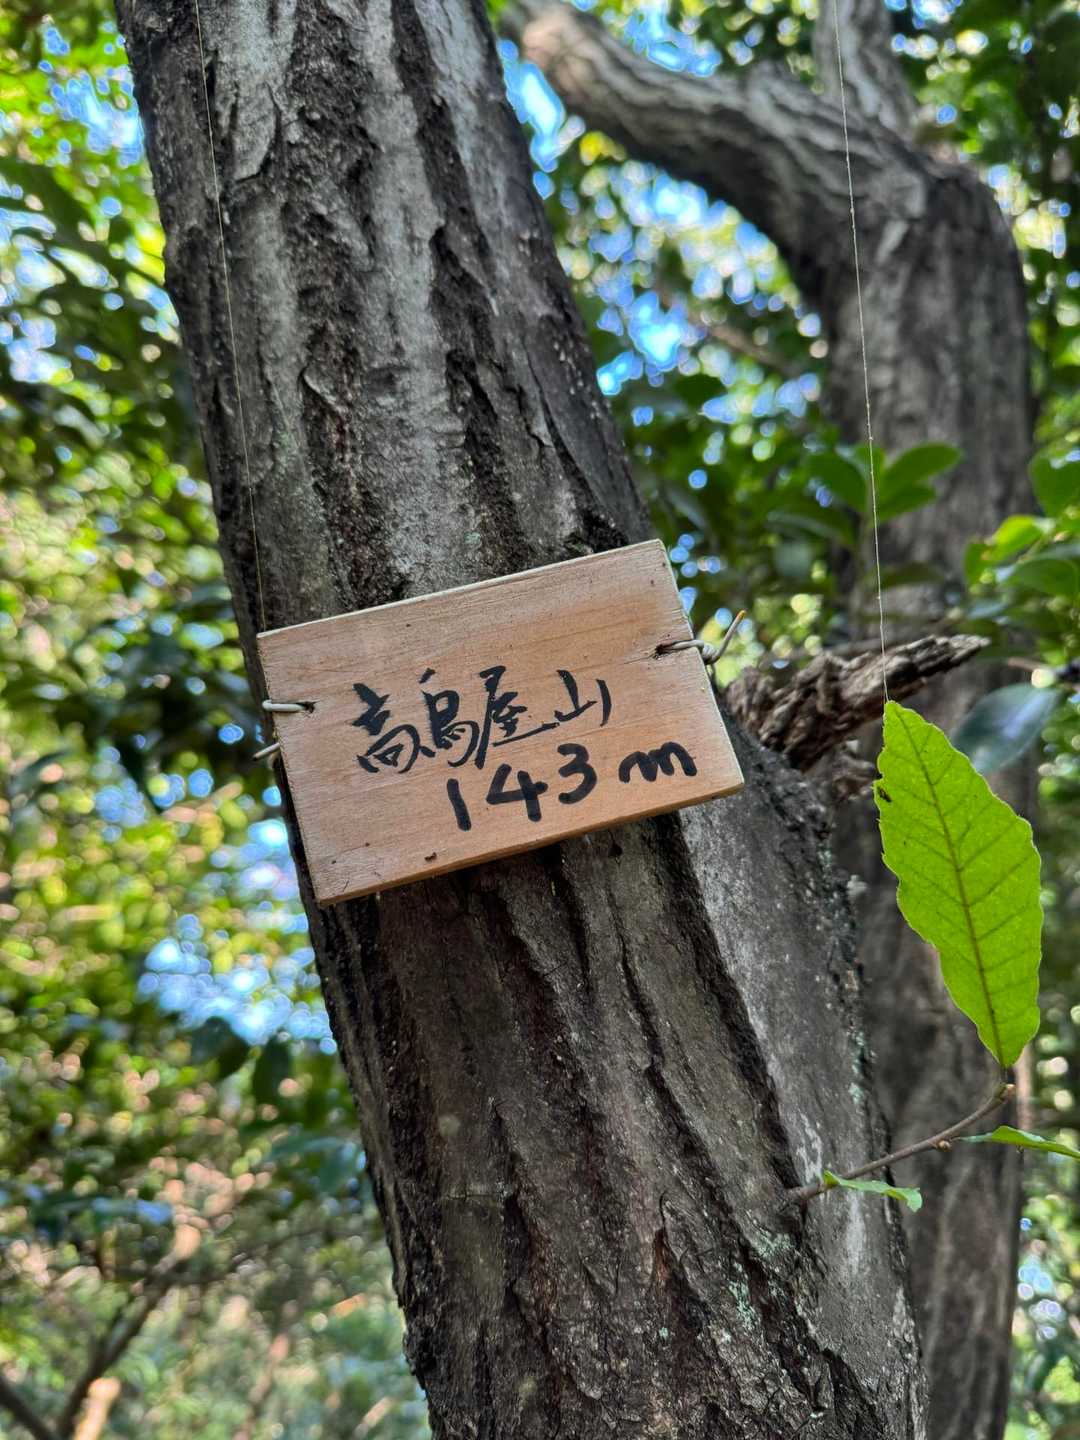 高鳥屋山
143m